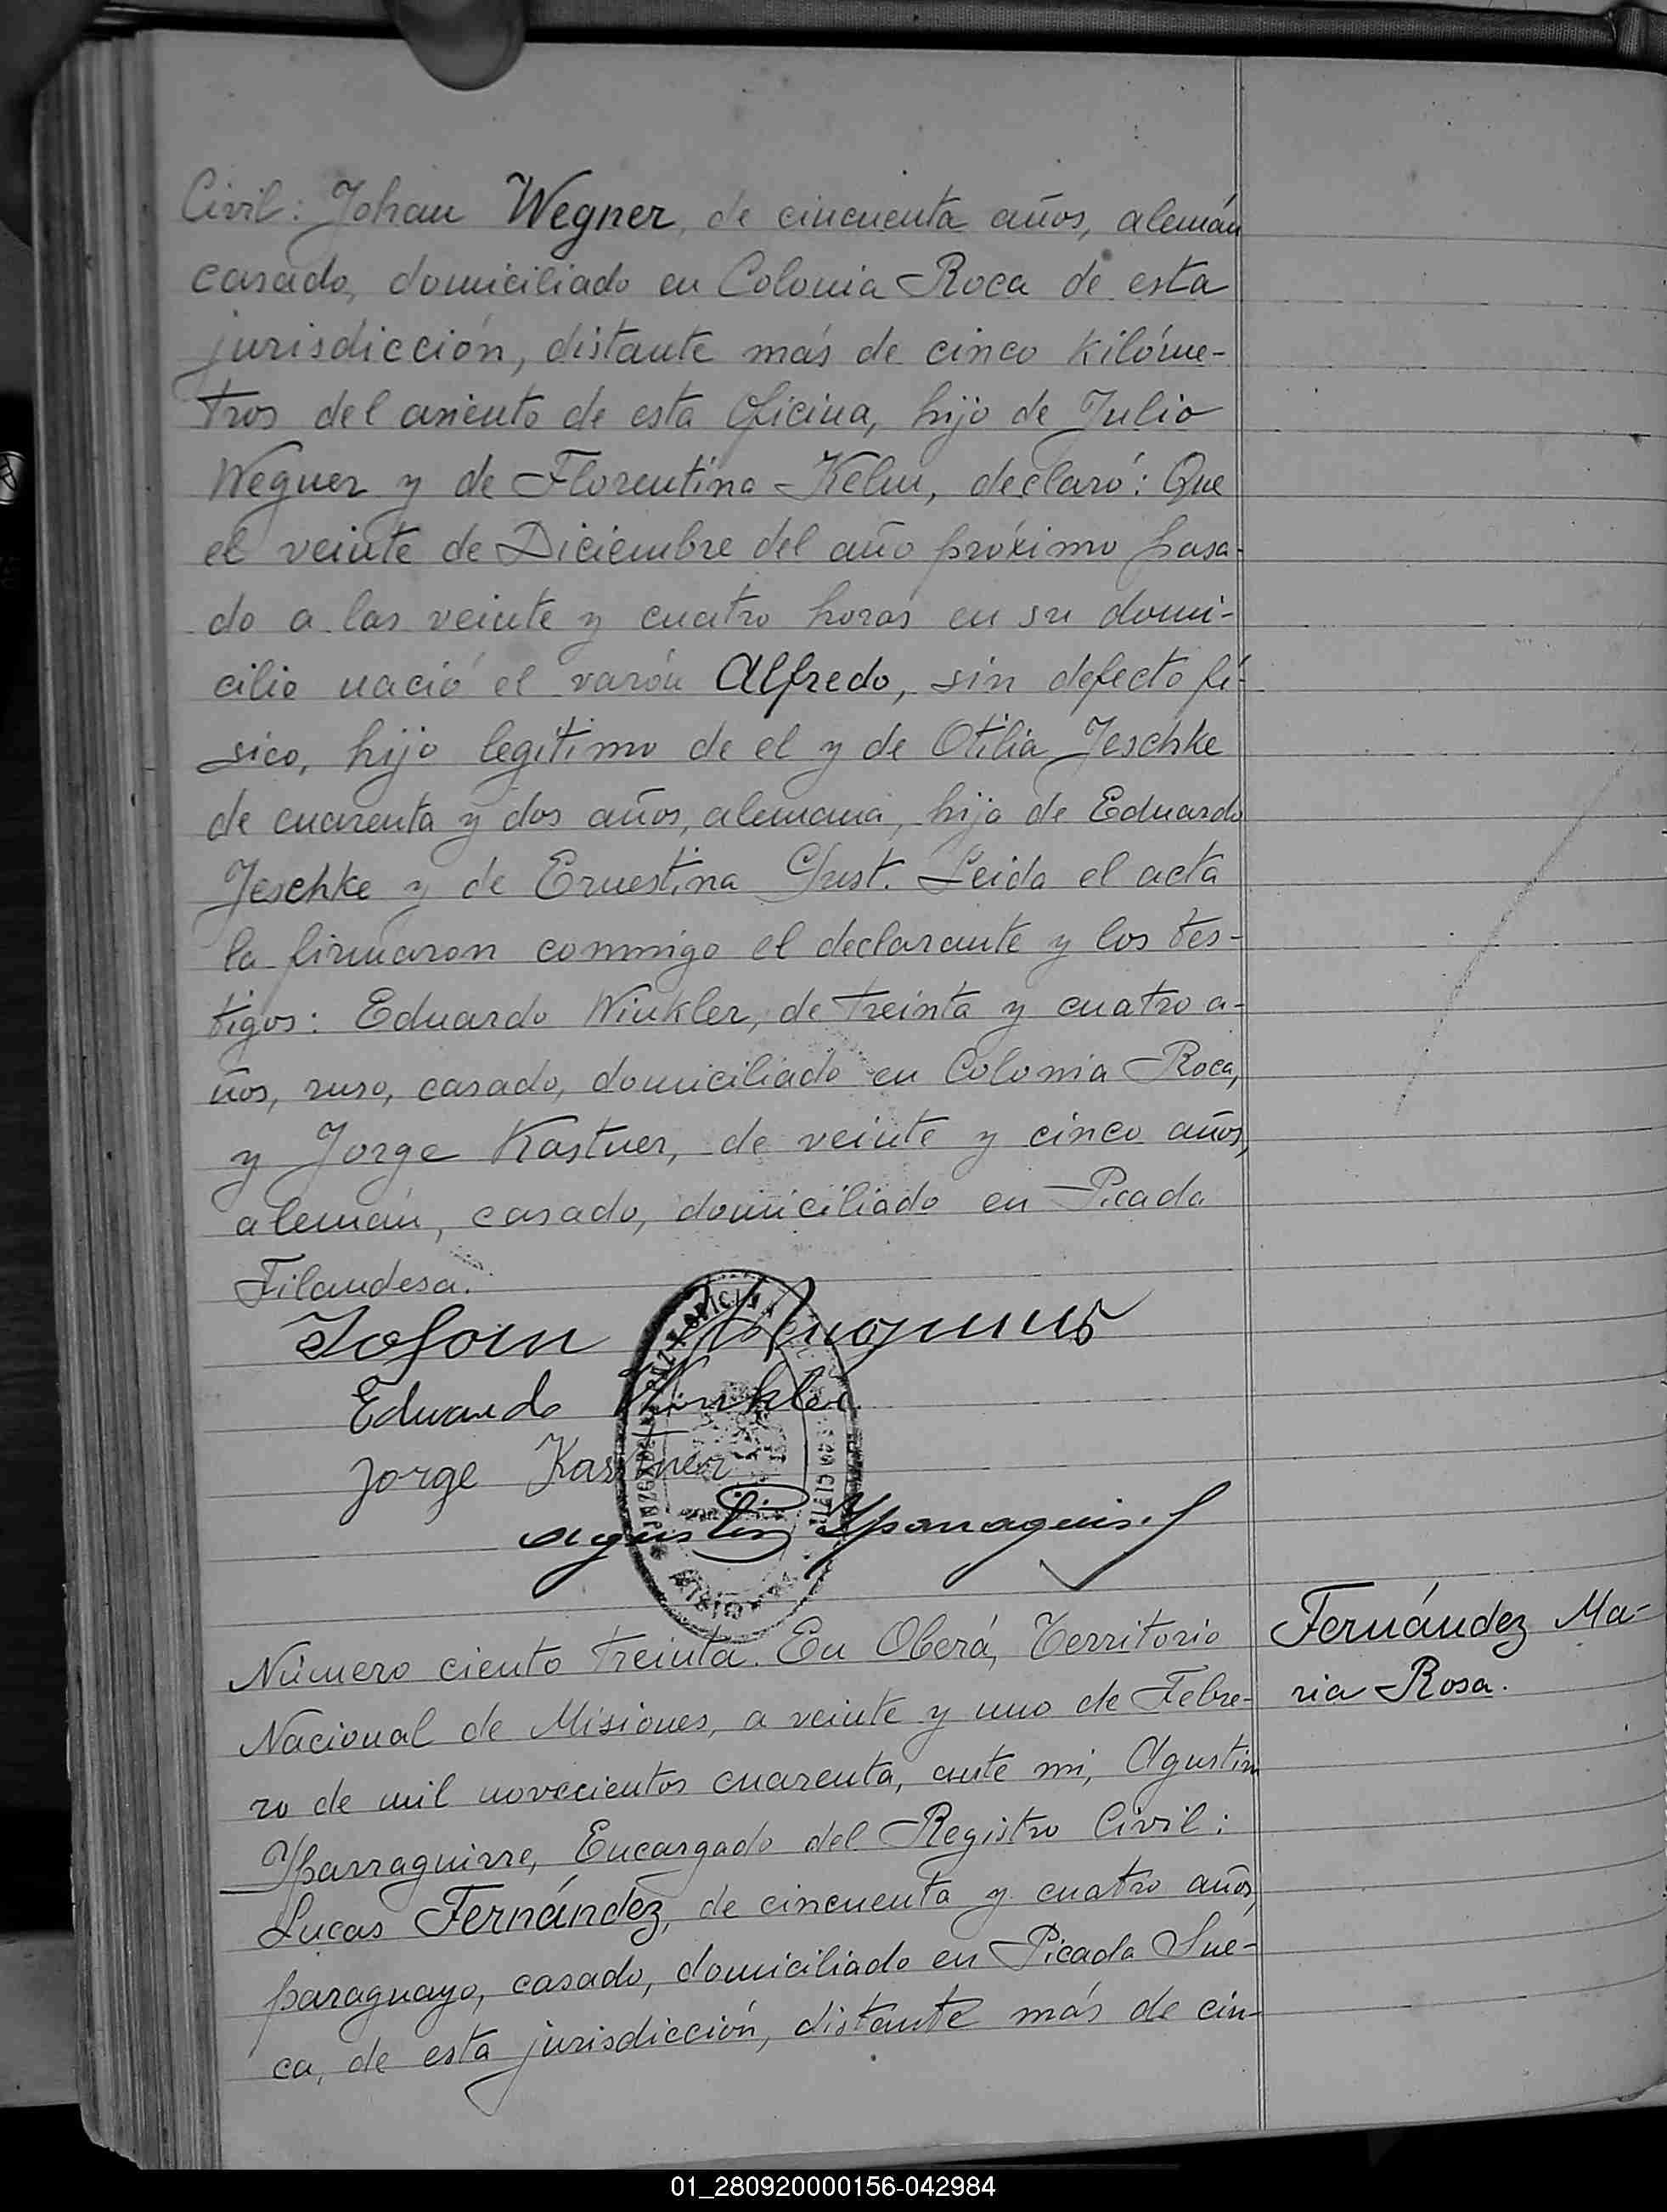 Civil: Johan Wegner, de cincuenta años, alemán
casado, domiciliado en Colonia Roca de esta
jurisdicción, distante más de cinco kilóme-
tros del asiento de esta Oficina, hijo de Julio
Wegner y de Florentina Kelm, declaró: Que
el veinte de Diciembre del año próximo pasa-
do a las veinte y cuatro horas en su domi-
cilio nació el varón Alfredo, sin defecto fí-
sico, hijo legítimo de el y de Otilia Jeschke
de cuarenta y dos años, alemana, hija de Eduardo
Jeschke y de Ernestina Gust. Leida el acta
la firmaron conmigo el declarante y los tes-
tigos: Eduardo Winkler, de treinta y cuatro a-
ños, ruso, casado, domiciliado en Colonia Roca,
y Jorge Kastner, de veinte y cinco años,
alemán, casado, domiciliado en Picada
Filandesa.
Eduardo Winkler
Jorge Kastner
Número ciento treinta. En Oberá, Territorio
Nacional de Misiones, a veinte y uno de Febre-
ro de mil novecientos cuarenta, ante mi, Agustin
Yparraguirre, Encargado del Registro Civil:
Lucas Fernández, de cincuenta y cuatro años,
paraguayo, casado, domiciliado en Picada Sue-
ca, de esta jurisdicción, distante más de cin-
Fernández Ma-
ria Rosa.
01_280920000156-042984